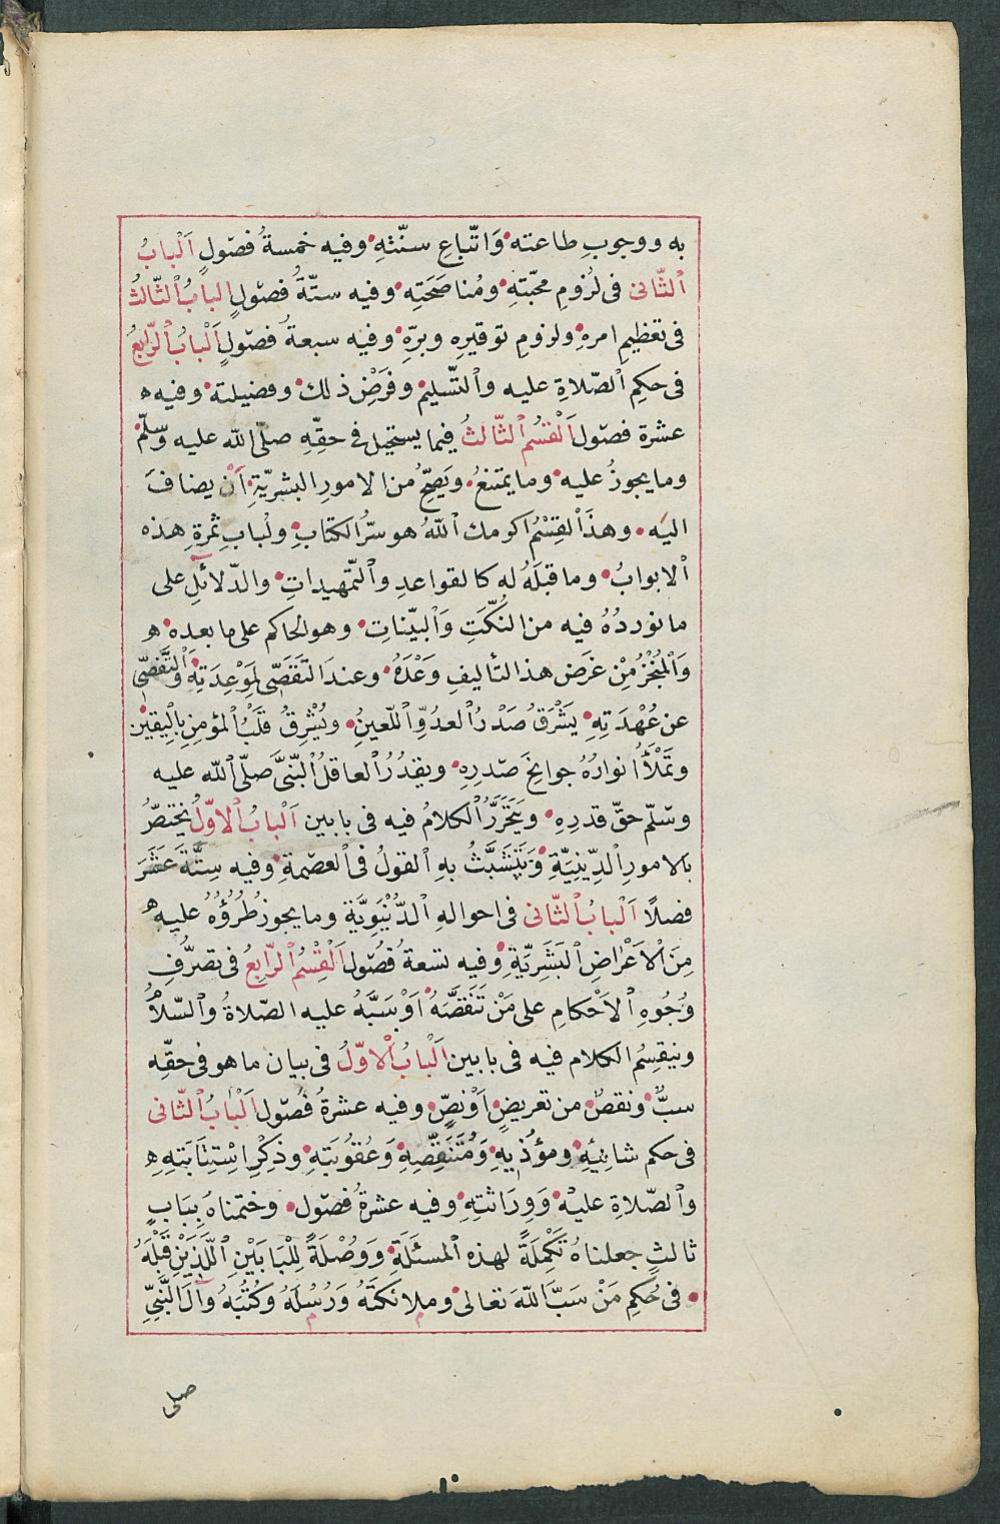 به ووجوبِ طاعته وَاتّباعِ سنّتهِ وفيه خمسةُ فصّولٍ اَلْبابُ
الثّانى فى لزُومِ محبّتهِ ومُناصَحَتِه وفيه ستّةُ فصّولٍ البابُ الثّالثُ
فى تعظيمِ امرهِ ولزومِ توقيرِه وبرّهِ وفيه سبعةُ فصّولٍ اَلْبابُ الرّابعُ
فى حكمِ الصّلاةِ عليه والتّسليم وفَرَضِْ ذلك وفضيلته وفيه
عشرة فصّول اَلْقسْم الثّالثُ فيما يستحيل فى حقّهِ صلّى الله عليه وسلّم
ومايجوزُ عليه ومايمتنعُ ويَصِحُّ من الامورِ البشريّةِ اَنْ يضافَ
اليه وهذَا لقِسْمُ اكرمك اللهُ هو سرُّ الكتابِ ولُبابِ ثمرةِ هذه
الابوابُ وما قبلَهُ له كالقواعدِ والتّمهيداتِ والدّلائلِ على
مانوردُهُ فيه من النُكّتِ وَالْبيّناتِ وهو الحاكم على مابعده
وَالْمُنْجْزُ مِنْ غَرَض هذا التأليفِ وَعْدَهُ وعندَ التَقَصّى لِمَوْعِدَتِهِ والتَّفَصّى
عن عُهْدَتِهِ يَشْرَقُ صَدْرُ العدوِّ اللّعينُ ويُشْرِقُ قلَبُ المؤمنِ بِاليقيْن
وتَمْلَأُ انوارُهُ جوانِحَ صّدرِهِ ويقدُرُ العاقلُ النّبىَّ صلّى الله عليه
وسّلّم حقّ قدرِهِ ويَتَحَرَّرُ الكلامُ فيه فى بابين اَلْبابُ الاوّلُ يختصّرُ
بالامورِ الدِّينِيَّةِ وَيَتَشَبَّثُ بهِ القولُ فى العصّمةِ وفيه سِتَّةَ عَشَرَ
فصلًا اَلْبابُ الثّانى فى احوالهِ الدُّنْيَوِيَّةِ ومايجوز طُرُؤُهُ عليه
مِنَ الْاَعْرَاضِ الْبَشَرِيّةِ وفيه تسعةُ فصّول اَلْقِسْمُ الرّابِعُ فى تصرُّفِ
وُجُوهِ الاَحْكامِ على مَنْ تَنَقصَّهُ اَوْ سَبَّهُ عليه الصّلاةُ والسّلامُ
وينقسِمُ الكلام فيه فى بابين اَلْبابُ الْاوّلُ فى بيان ماهو فى حقّه
سبٌّ ونقصٌ من تعريضٍ اَوْ نصٍّ وفيه عشرةُ فُصّول اَلْبابُ الثّانى
فى حكم شانِئِهِ ومؤْذيهِ وَمُتَنَقِّصِّهِ وَعُقوُبَتِهِ وذَكِرْ اسْتِتَابَتِهِ
والصّلاةِ عليْه وَوِرَاثتِهِ وفيه عشرةُ فصّول وختمناهُ بِبَابٍ
ثالثٍ جعلناهُ تَكْمِلَةً لهذه المسئلَةِ وَوُصْلَةً لِلْبَابَيْنِ اللَّذَيْنِ قَبْلَهُ
فى حُكمِ مَنْ سَبَّ اللهَ تعالى وملائكتَهُ وَرُسُلَهُ وَكُتُبَهُ وآلَ النَّبِيِّ
صلى